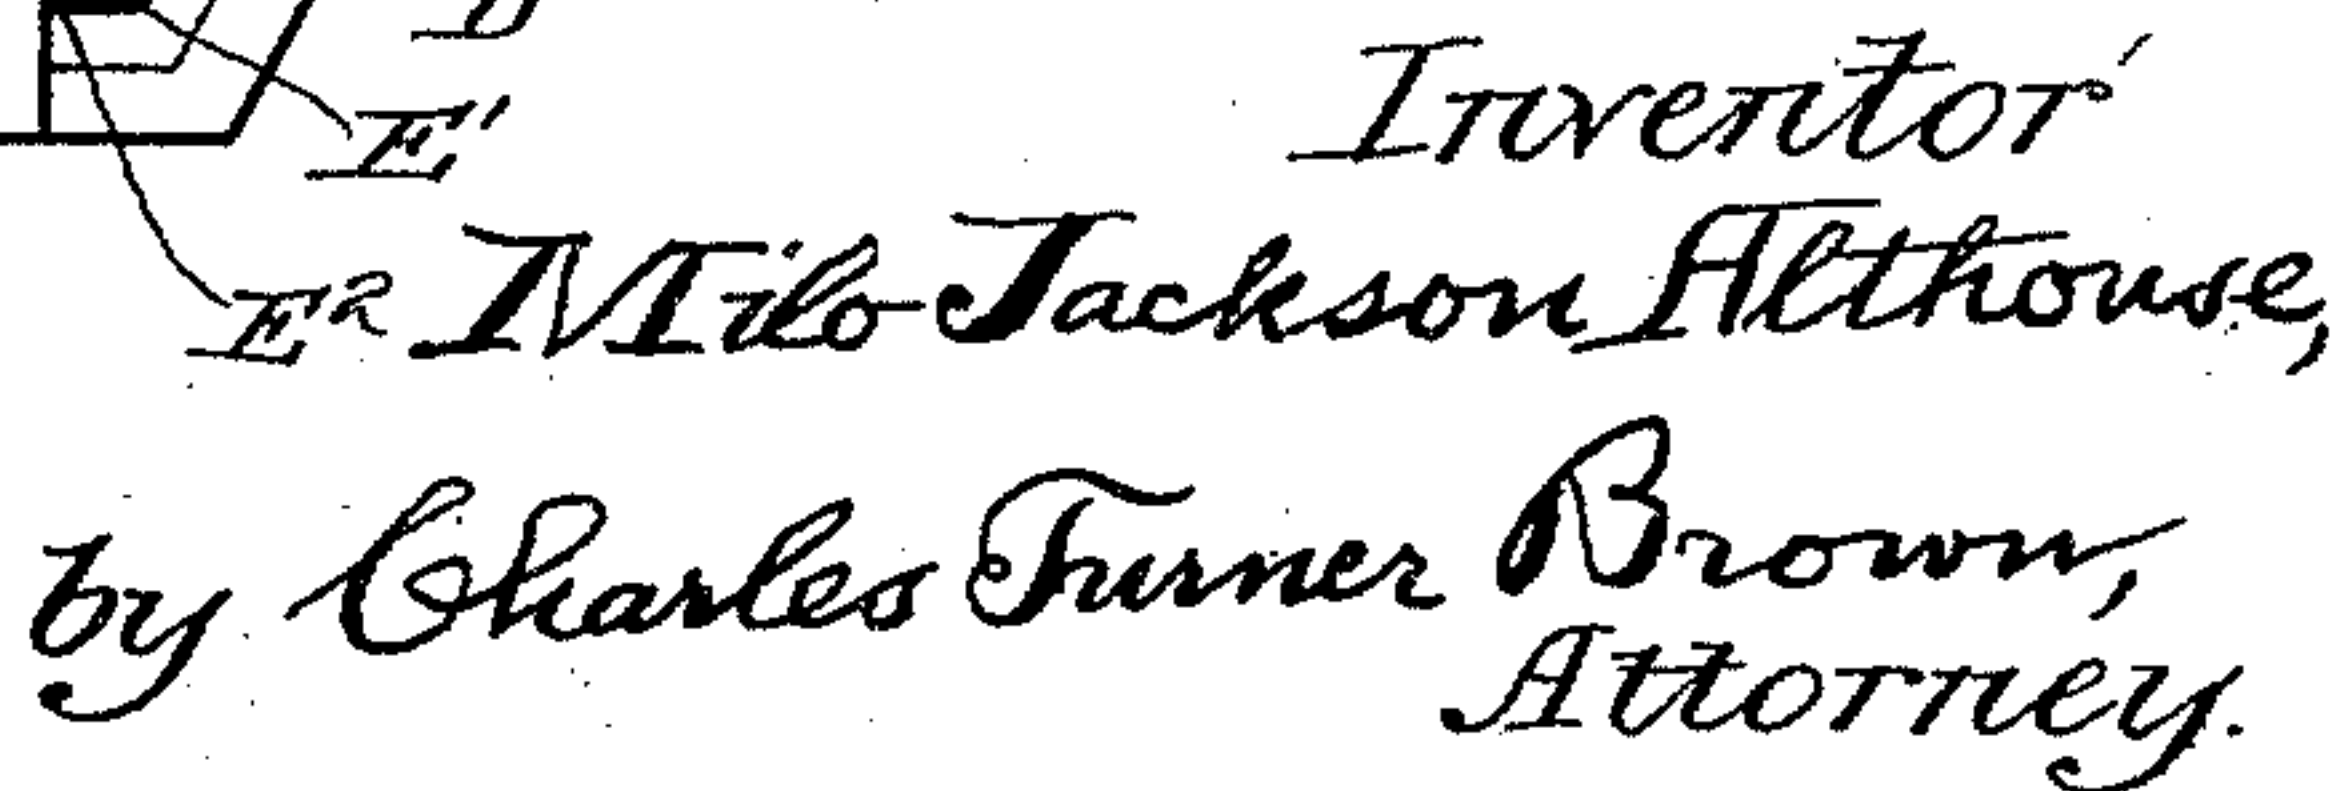 Inventor
E'
E² Milo Jackson Althouse,
by Charles Turner Brown,
Attorney.